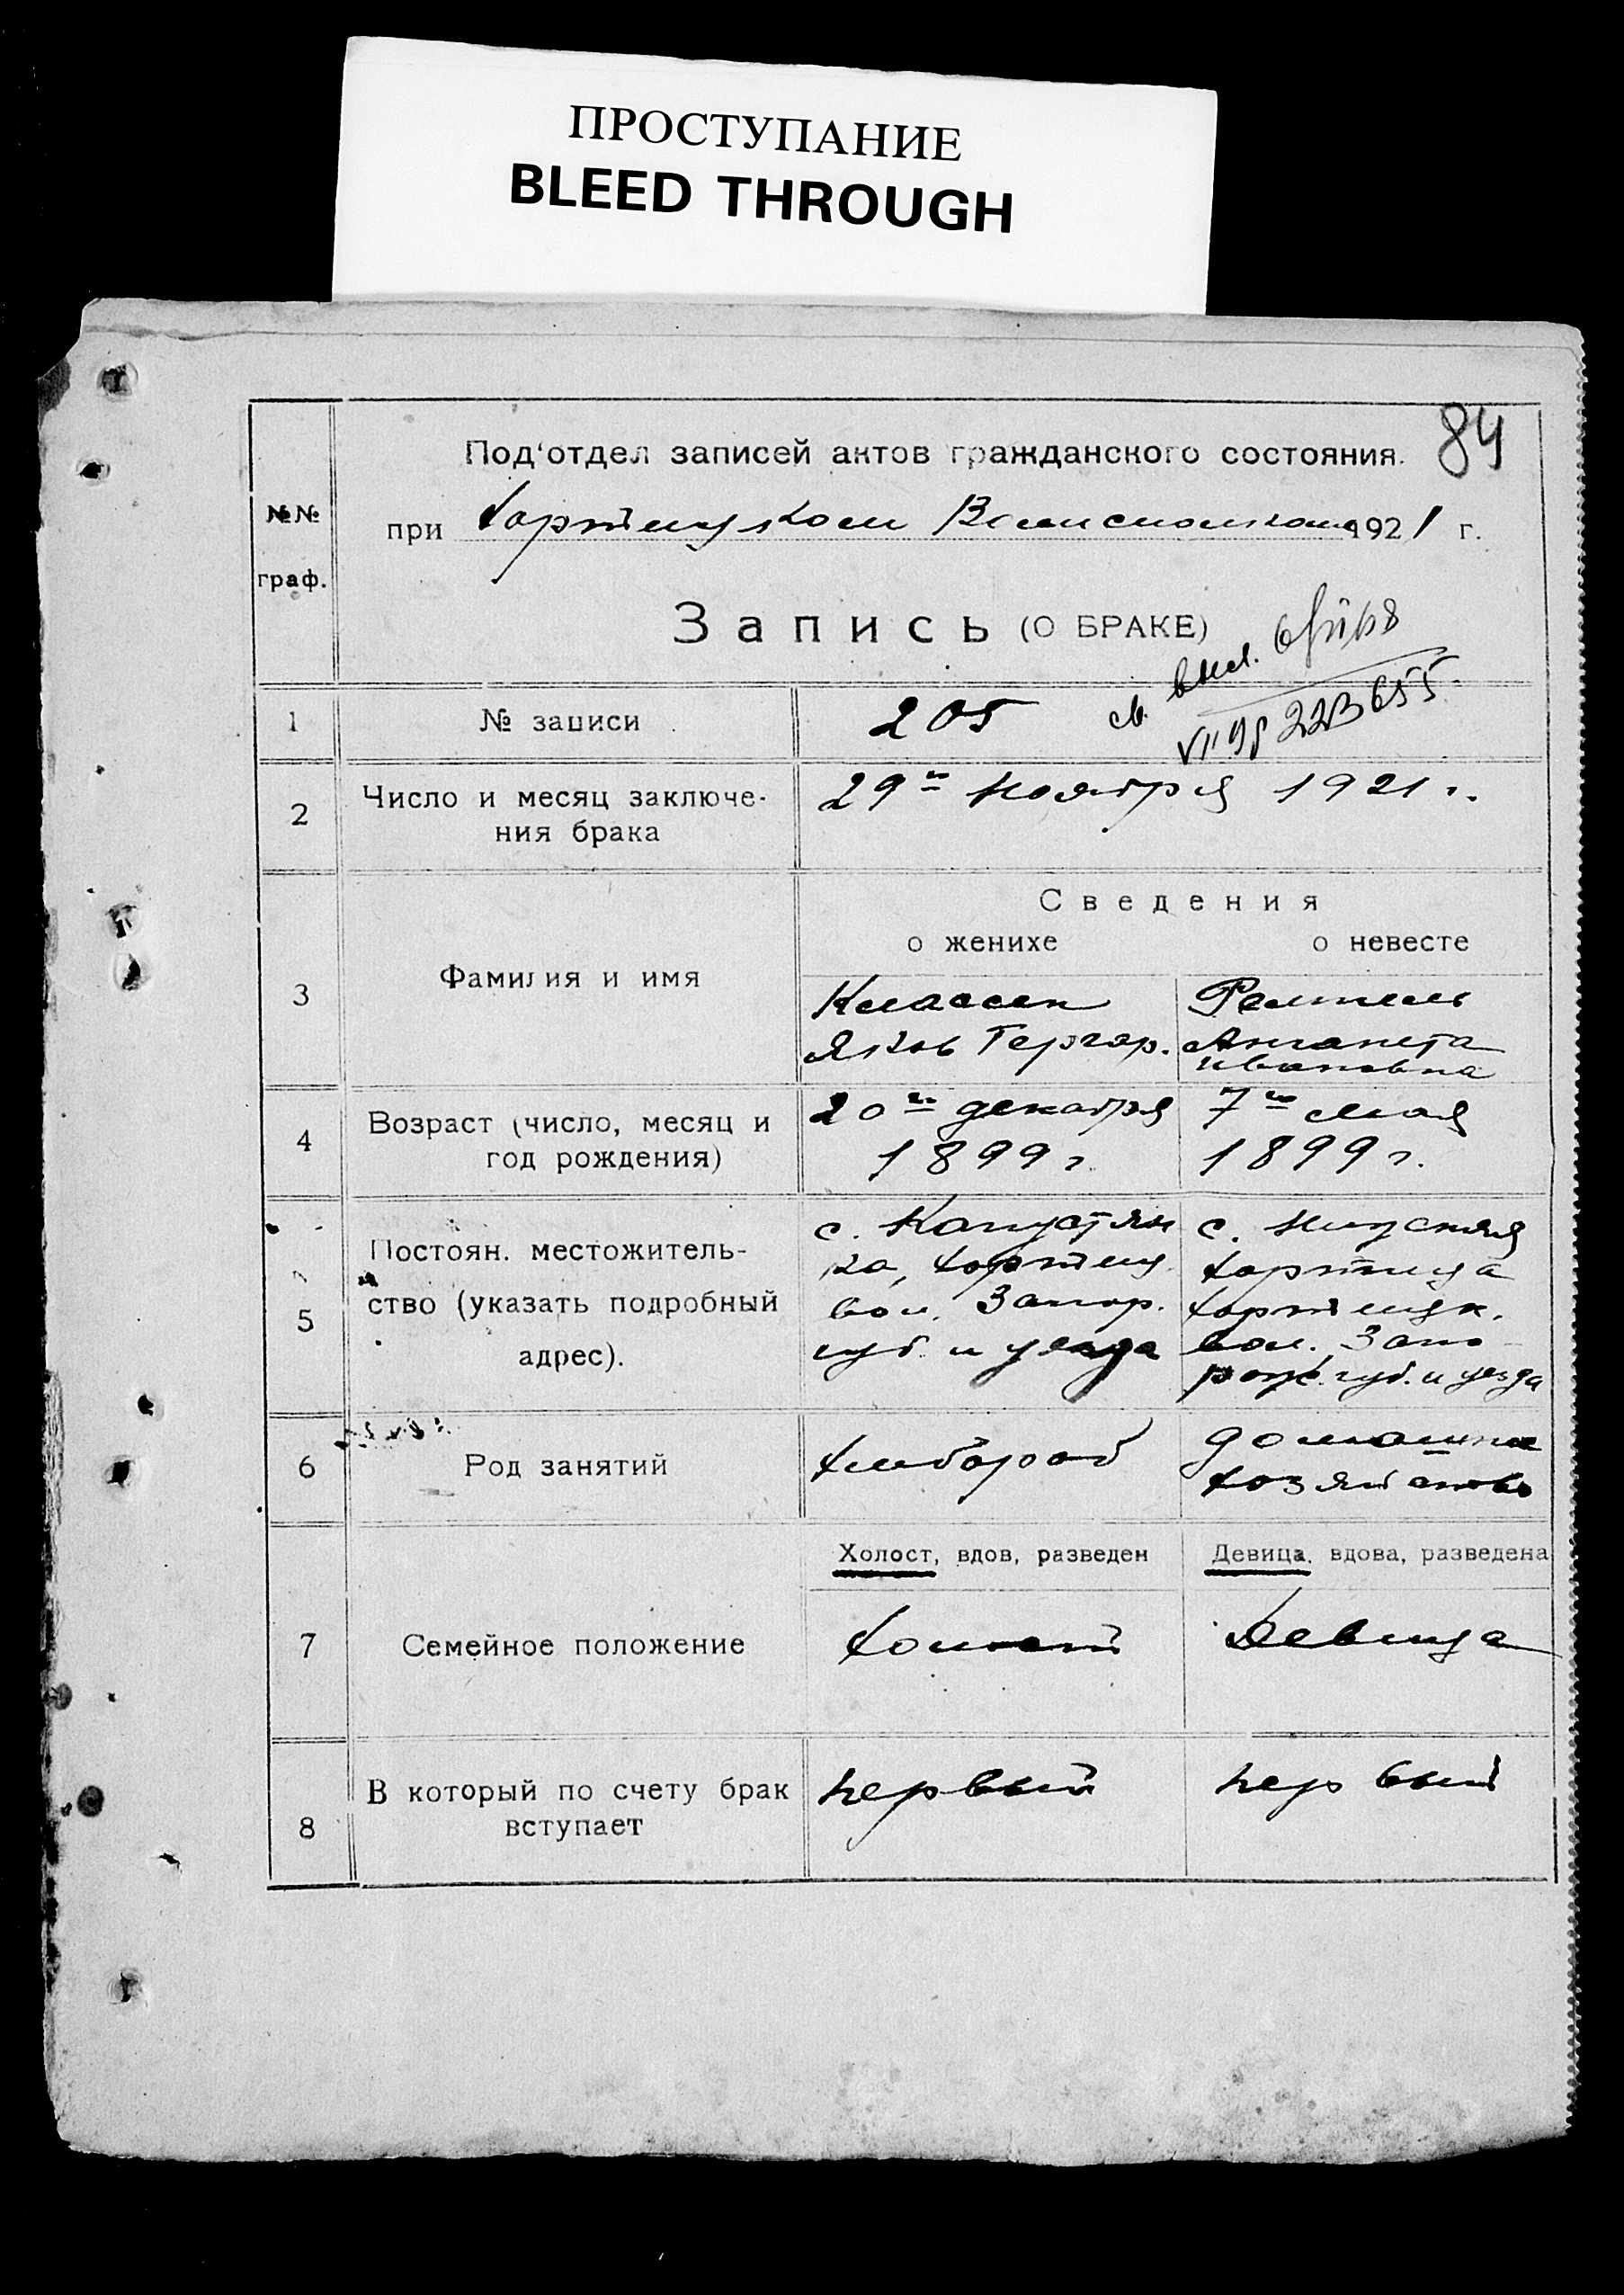 ПРОСТУПАНИЕ
BLEED THROUGH
84
Под'отдел записей актов гражданского состояния.
№№
граф.
при Хортицком Волисполкоме 1921 г.
Запись (О БРАКЕ)
св. выд.
VII ЯР 223655
1 № записи 205
2 Число и месяц заключе-
ния брака
29го Ноября 1921 г.
Сведения
о женихе о невесте
3 Фамилия и имя
Классен
Яков Гергар.
Ремпель
Анганета
Ивановна
4 Возраст (число, месяц и
год рождения)
20го декабря
1899 г.
7го мая
1899 г.
5 Постоян. местожитель-
ство (указать подробный
адрес).
с. Капустян
ка, Хортиц.
вол. Запор.
губ. и уезда
с. Нижняя
Хортица
Хортицк.
вол. Запо-
рож. губ. и уезда
6 Род занятий
Хлебороб
домашнее
хозяйство
Холост, вдов, разведен
Девица, вдова, разведена
7 Семейное положение
Холост
Девица
8 В который по счету брак
вступает
первый
первый